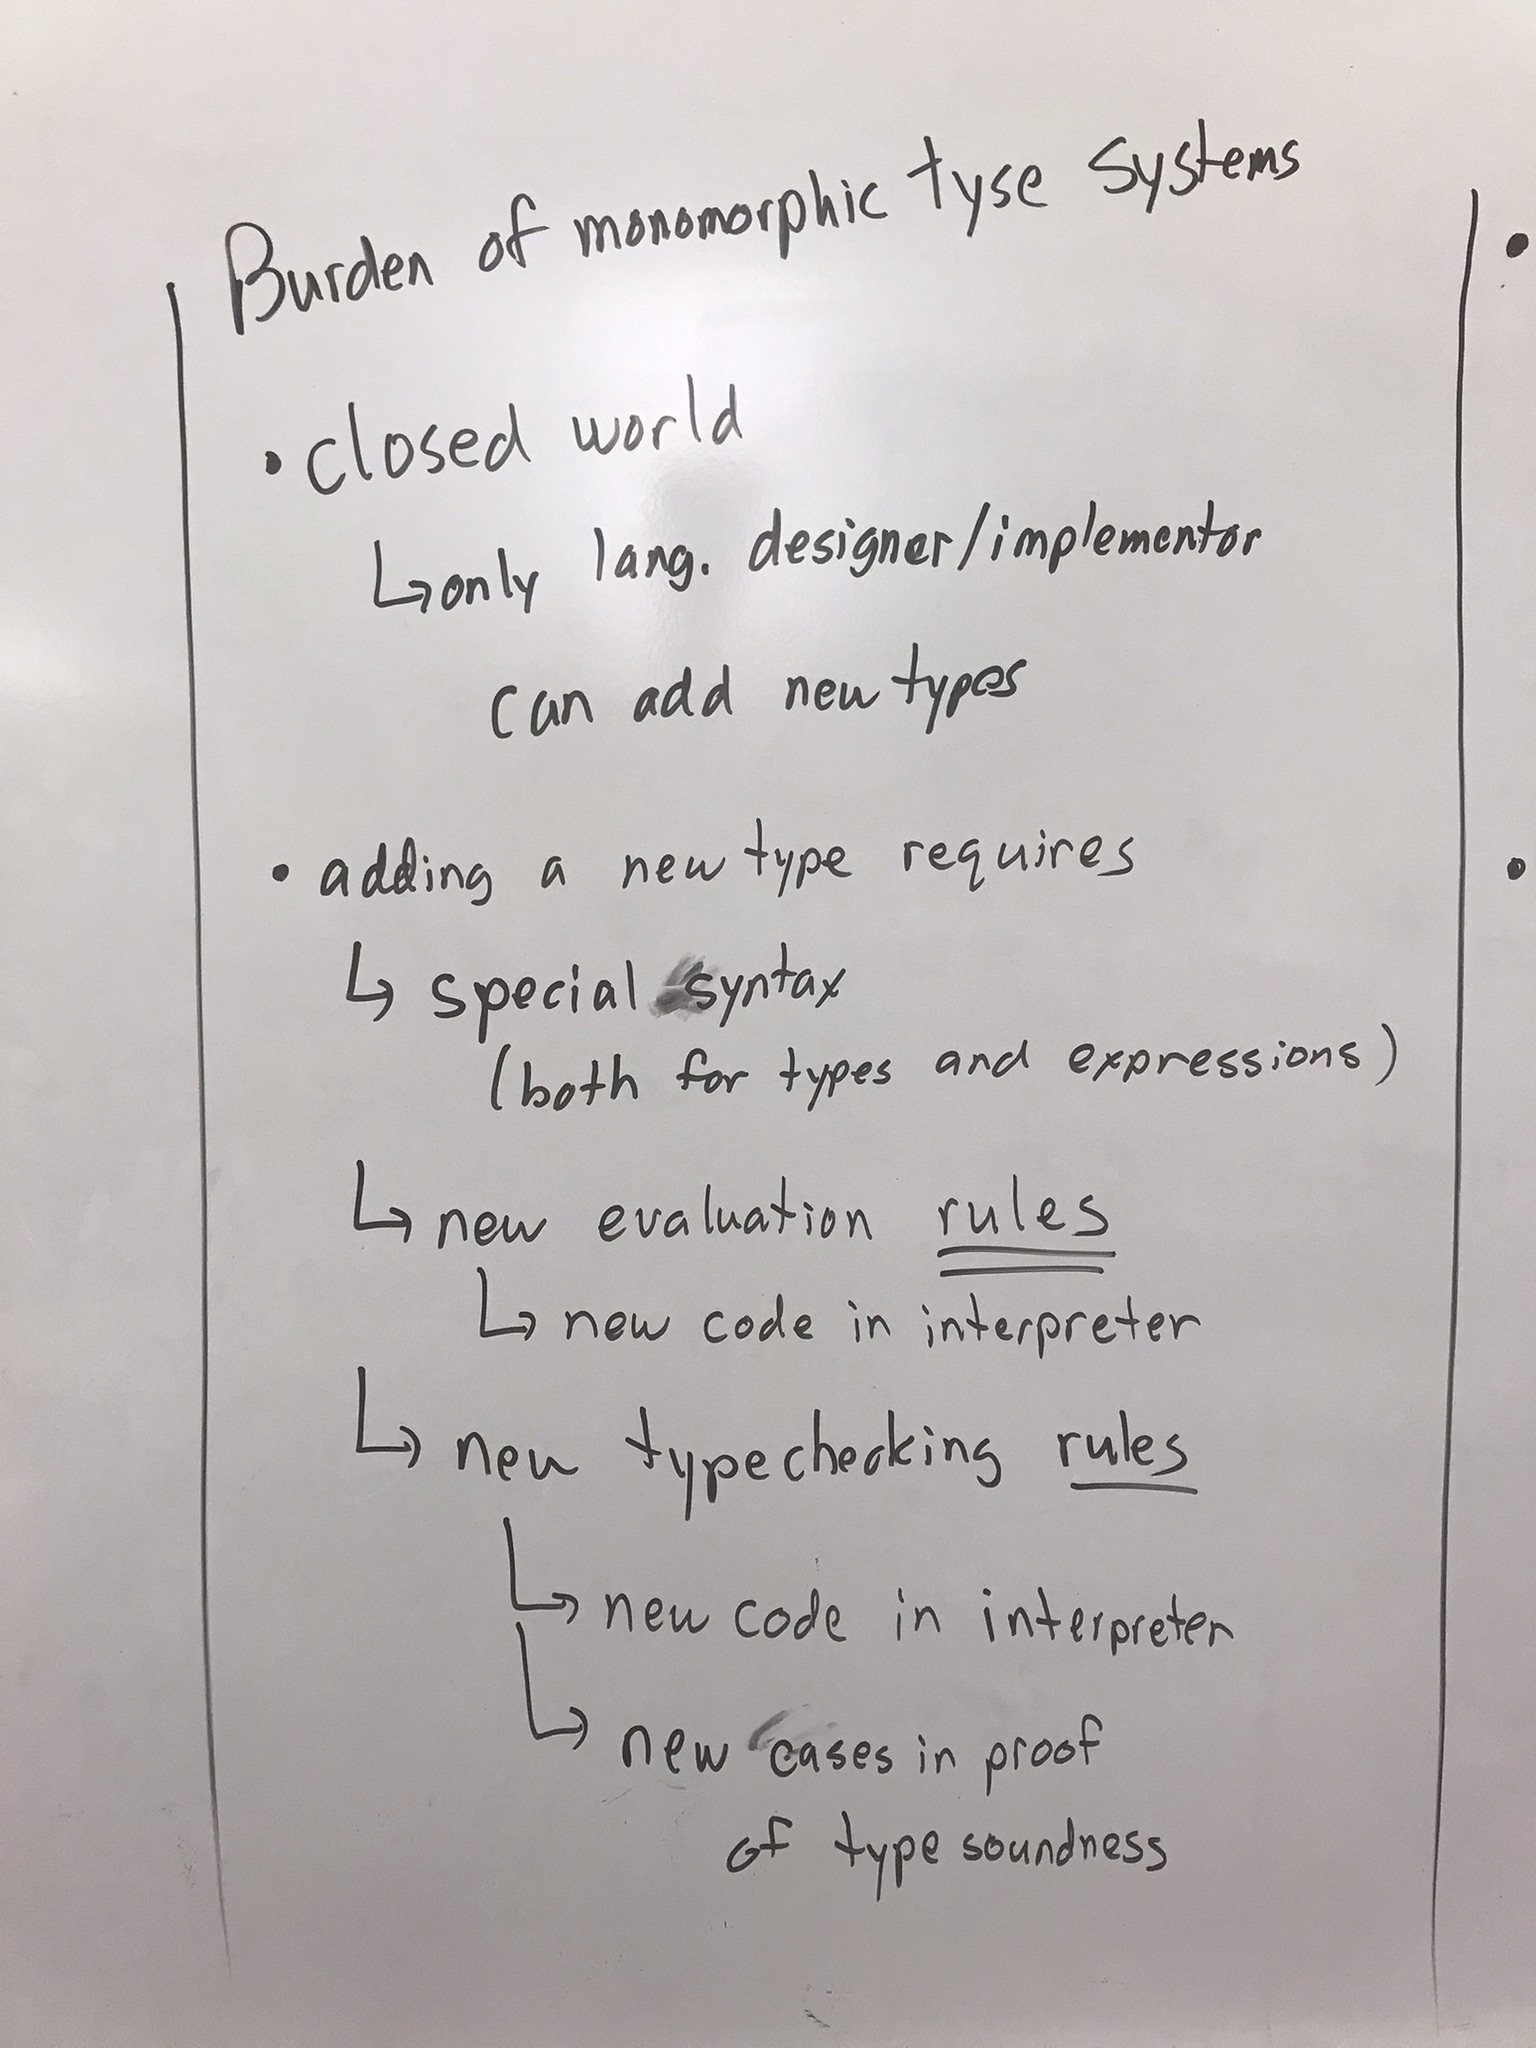 Burden of monomorphic tyse systems
• closed world
↳ only lang. designer/implementor
can add new types
• adding a new type requires
↳ special syntax
(both for types and expressions)
↳ new evaluation rules
↳ new code in interpreter
↳ new typechecking rules
↳ new code in interpreter
↳ new cases in proof
of type soundness